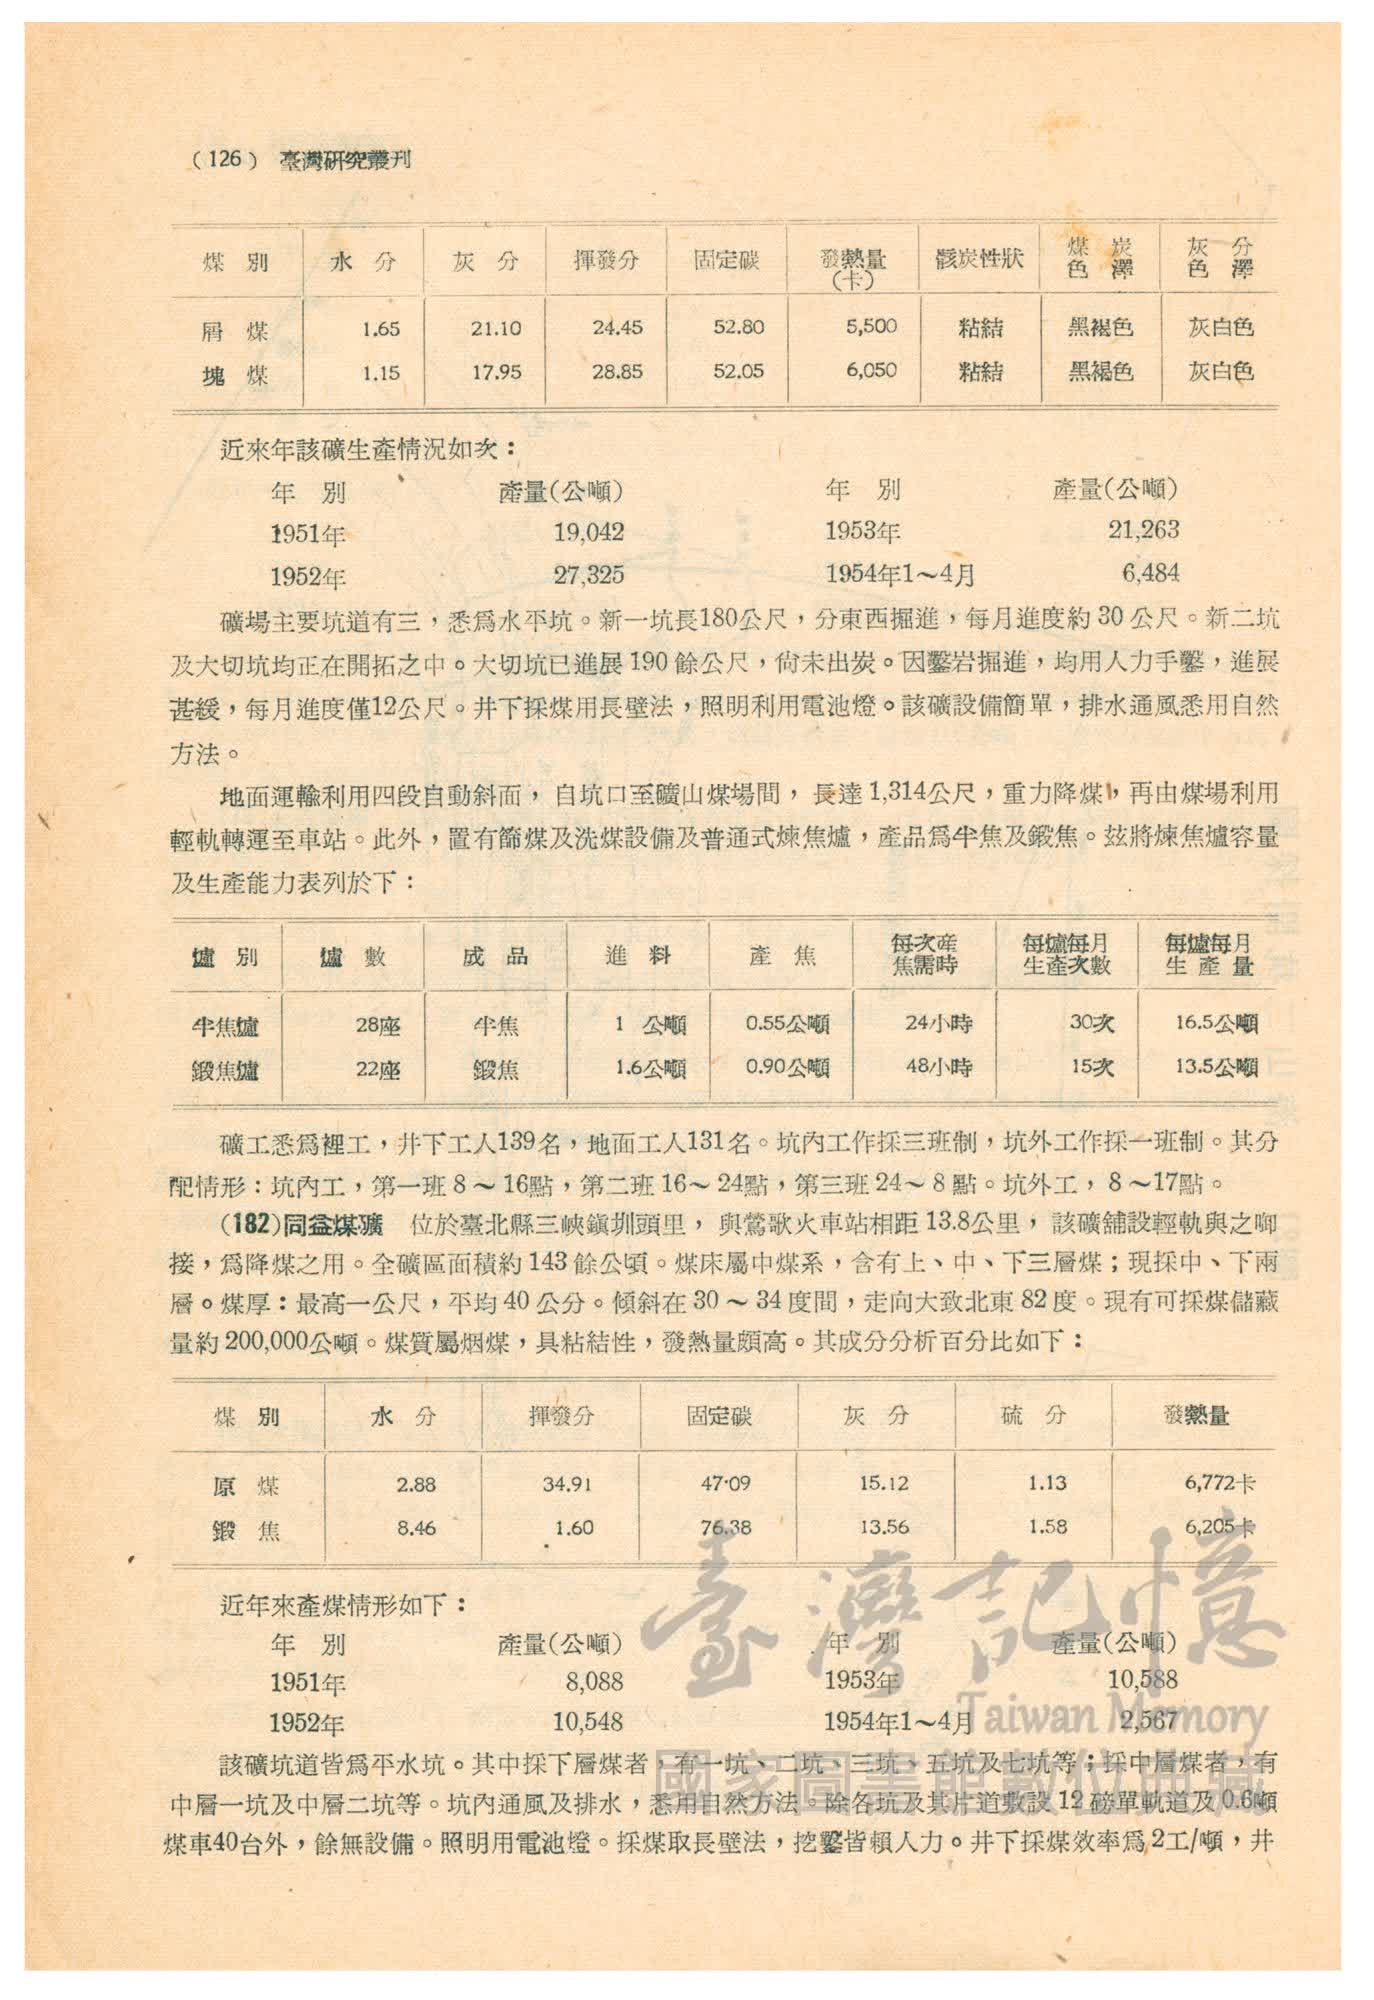 (126) 臺灣研究叢刊
煤別 水分 灰分 揮發分 固定碳 發熱量(卡) 骸炭性狀 煤炭色澤 灰分色澤
屑煤 1.65 21.10 24.45 52.80 5,500 粘結 黑褐色 灰白色
塊煤 1.15 17.95 28.85 52.05 6,050 粘結 黑褐色 灰白色
近來年該礦生產情況如次：
年別 產量(公噸) 年別 產量(公噸)
1951年 19,042 1953年 21,263
1952年 27,325 1954年1～4月 6,484
礦場主要坑道有三，悉爲水平坑。新一坑長180公尺，分東西掘進，每月進度約30公尺。新二坑
及大切坑均正在開拓之中。大切坑已進展190餘公尺，尙未出炭。因鑿岩掘進，均用人力手鑿，進展
甚緩，每月進度僅12公尺。井下採煤用長壁法，照明利用電池燈。該礦設備簡單，排水通風悉用自然
方法。
地面運輸利用四段自動斜面，自坑口至礦山煤場間，長達1,314公尺，重力降煤，再由煤場利用
輕軌轉運至車站。此外，置有篩煤及洗煤設備及普通式煉焦爐，產品爲半焦及鍛焦。玆將煉焦爐容量
及生產能力表列於下：
爐別 爐數 成品 進料 產焦 每次產焦需時 每爐每月生產次數 每爐每月生產量
半焦爐 28座 半焦 1公噸 0.55公噸 24小時 30次 16.5公噸
鍛焦爐 22座 鍛焦 1.6公噸 0.90公噸 48小時 15次 13.5公噸
礦工悉爲裡工，井下工人139名，地面工人131名。坑內工作採三班制，坑外工作採一班制。其分
配情形：坑內工，第一班8～16點，第二班16～24點，第三班24～8點。坑外工，8～17點。
(182)同益煤礦 位於臺北縣三峽鎭圳頭里，與鶯歌火車站相距13.8公里，該礦舖設輕軌與之啣
接，爲降煤之用。全礦區面積約143餘公頃。煤床屬中煤系，含有上、中、下三層煤；現採中、下兩
層。煤厚：最高一公尺，平均40公分。傾斜在30～34度間，走向大致北東82度。現有可採煤儲藏
量約200,000公噸。煤質屬烟煤，具粘結性，發熱量頗高。其成分分析百分比如下：
煤別 水分 揮發分 固定碳 灰分 硫分 發熱量
原煤 2.88 34.91 47·09 15.12 1.13 6,772卡
鍛焦 8.46 1.60 76.38 13.56 1.58 6,205卡
近年來產煤情形如下：
年別 產量(公噸) 年別 產量(公噸)
1951年 8,088 1953年 10,588
1952年 10,548 1954年1～4月 2,567
該礦坑道皆爲平水坑。其中採下層煤者，有一坑、二坑、三坑、五坑及七坑等；採中層煤者，有
中層一坑及中層二坑等。坑內通風及排水，悉用自然方法。除各坑及其片道敷設12磅單軌道及0.6噸
煤車40台外，餘無設備。照明用電池燈。採煤取長壁法，挖鑿皆賴人力。井下採煤效率爲2工/噸，井
臺灣記憶
Taiwan Memory
國家圖書館數位典藏